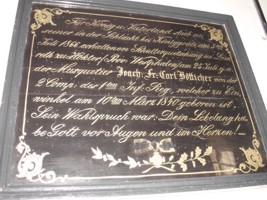 Für König u. Vaterland starb an
seiner in der Schlacht bei Kissingen am
Juli 1866 erhaltenen Schulterwunde
zu Kloster Westphalen am 25 Juli
der Musquetier Joach: Fr: Carl Bötticher von der
2 Comp. des Inf. Reg. welcher zu
winkel am 10ten März 1840 geboren ist.
Sein Wahlspruch war: Dein Lebelang ha-
be Gott vor Augen und im Herzen! —